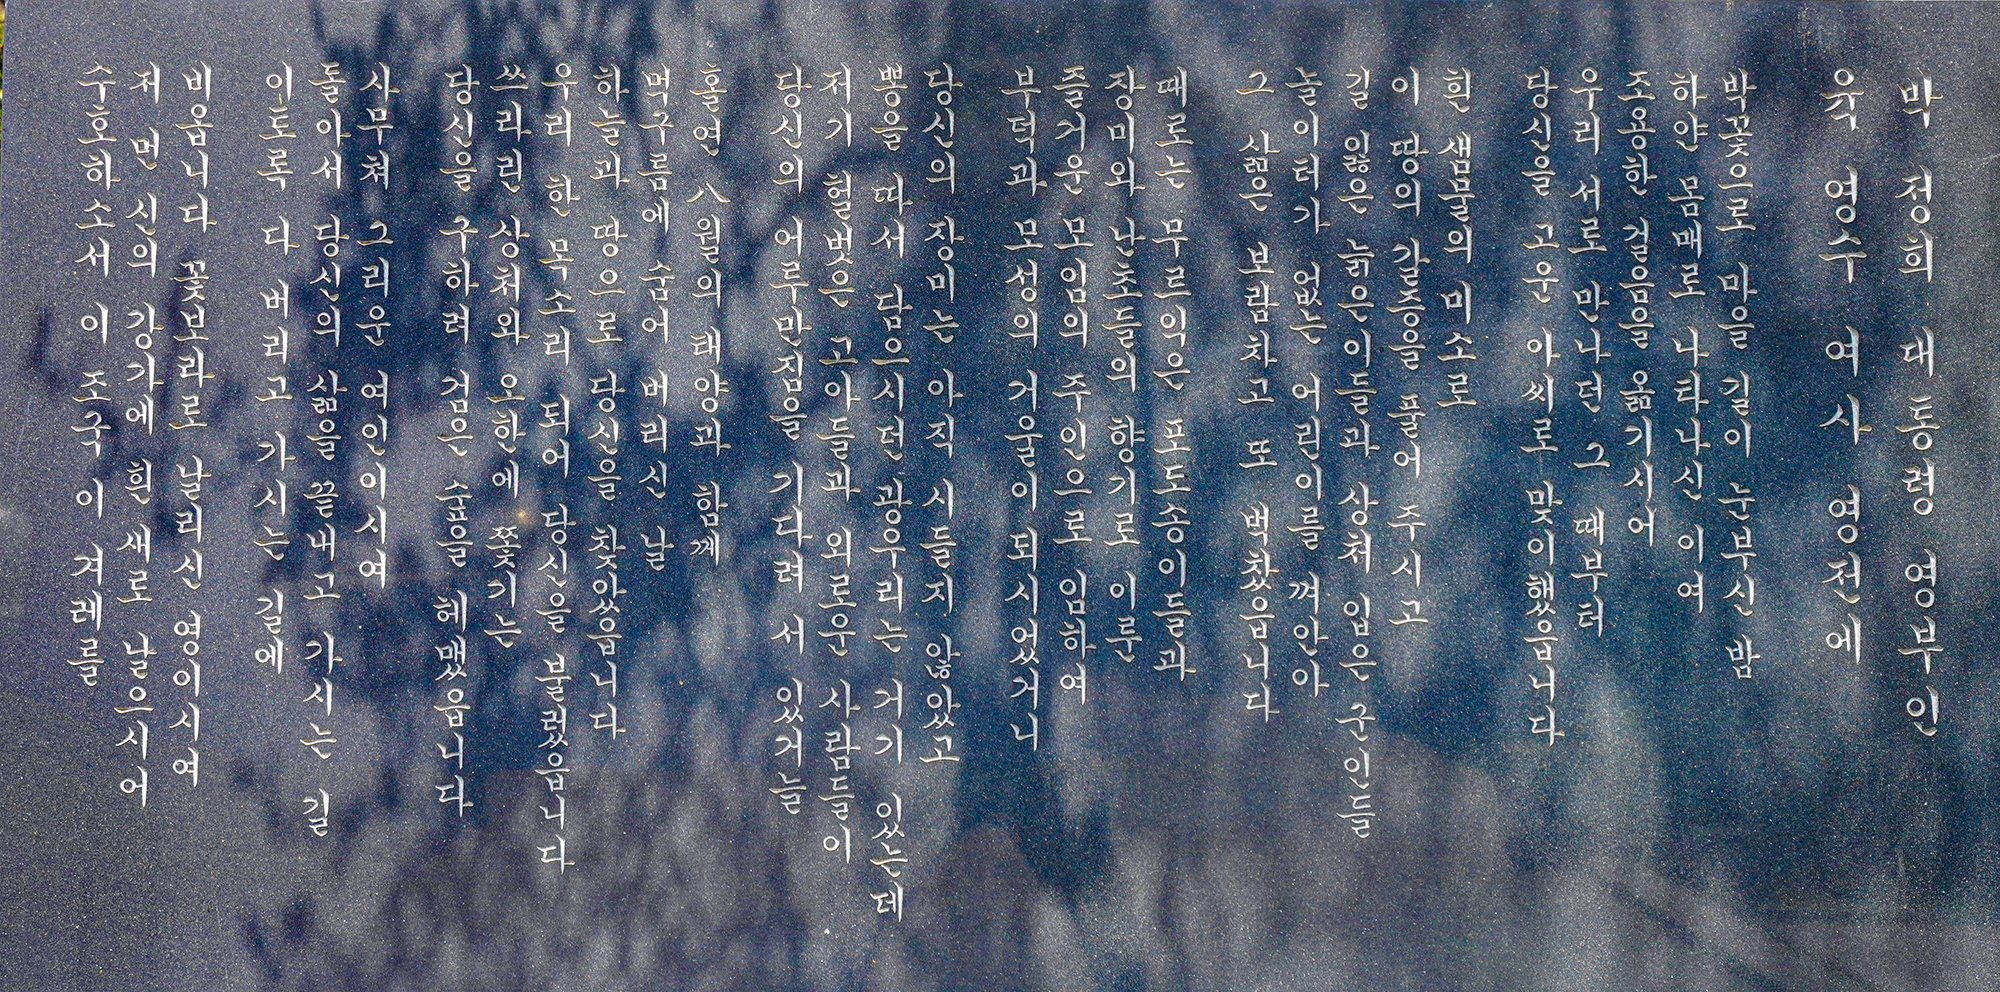 박 정희 대통령 영부인
육 영수 여사 영전에
박꽃으로 마을 길이 눈부신 밤
하얀 몸매로 나타나신 이여
조용한 걸음을 옮기시어
우리 서로 만나던 그 때부터
당신을 고운 아씨로 맞이했읍니다
흰 샘물의 미소로
이 땅의 갈증을 풀어 주시고
길 잃은 늙은이들과 상처 입은 군인들
놀이터가 없는 어린이를 껴안아
그 삶은 보람차고 또 벅찼읍니다
때로는 무르익은 포도송이들과
장미와 난초들의 향기로 이룬
즐거운 모임의 주인으로 임하여
부덕과 모성의 거울이 되시었거니
당신의 장미는 아직 시들지 않았고
뽕을 따서 담으시던 광우리는 거기 있는데
저기 헐벗은 고아들과 외로운 사람들이
당신의 어루만짐을 기다려 서 있거늘
홀연 八월의 태양과 함께
먹구름에 숨어 버리신 날
하늘과 땅으로 당신을 찾았읍니다
우리 한 목소리 되어 당신을 불렀읍니다
쓰라린 상처와 오한에 쫓기는
당신을 구하려 검은 숲을 헤맸읍니다
사무쳐 그리운 여인이시여
돌아서 당신의 삶을 끝내고 가시는 길
이토록 다 버리고 가시는 길에
비옵니다 꽃보라로 날리신 영이시여
저 먼 신의 강가에 흰 새로 날으시어
수호하소서 이 조국 이 겨레를